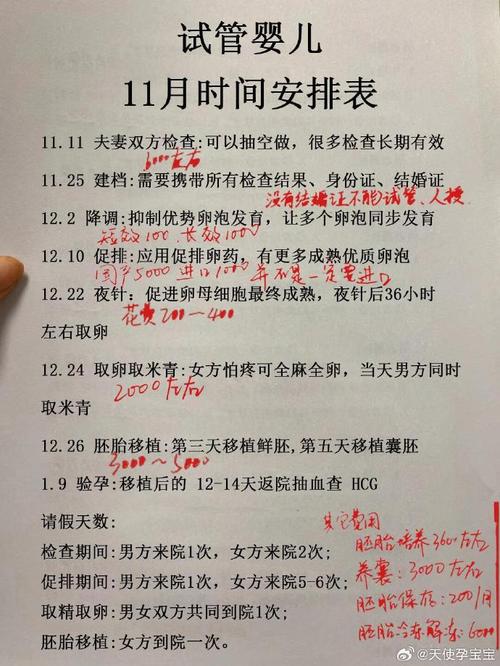 试管婴儿
11月时间安排表
11.11 夫妻双方检查:可以抽空做，很多检查长期有效
6000左右
11.25 建档:需要携带所有检查结果、身份证、结婚证
没有结婚证不能试管、人授
12.2 降调:抑制优势卵泡发育，让多个卵泡同步发育
短效100、长效1000
12.10 促排:应用促排卵药，有更多成熟优质卵泡
国产5000 进口1000 并不是一定要进口
12.22 夜针: 促进卵母细胞最终成熟，夜针后36小时
左右取卵
花费200—400
12.24 取卵取米青:女方怕疼可全麻全卵，当天男方同时
取米青
2000左右
12.26 胚胎移植:第三天移植鲜胚,第五天移植囊胚
3000～5000
1.9 验孕:移植后的 12-14天返院抽血查 HCG
请假天数:
检查期间:男方来院1次，女方来院2次;
促排期间:男方来院1次，女方来院5-6次;
取精取卵: 男女双方共同到院1次;
胚胎移植: 女方到院一次。
其它费用
胚胎培养3600左右
养囊: 3000左右
胚胎保存: 200/月
胚胎冷冻解冻: 6000
@天使孕宝宝